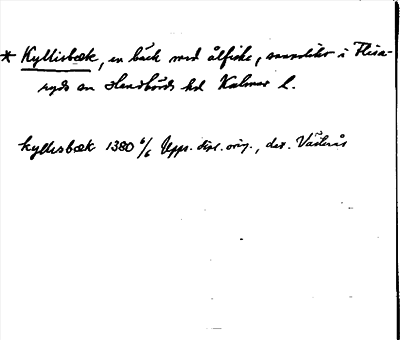 * Kyllisbæk, en bäck med ålfiske, sannolikt i Fliseryds sn Handbörds hd Kalmar l.
kyllisbæk 1380 6/6 Upps. dipl. orig., dat. Västerås